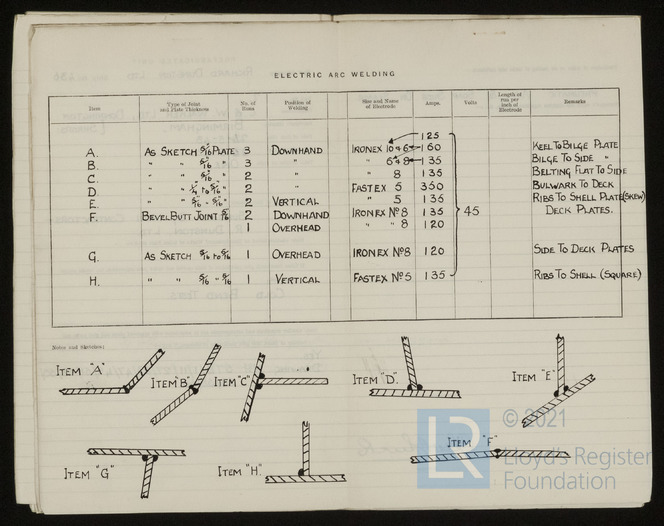 ELECTRIC ARC WELDING
Item Type of Joint and Plate Thickness No. of Runs Position of Welding Size and Name of Electrode Amps. Volts Length of run per inch of Electrode Remarks
125
A. AS SKETCH 5/16 PLATE 3 DOWNHAND IRONEX 10 & 6 160 KEEL TO BILGE PLATE
B. " " 5/16 " 3 " " 6 & 8 135 BILGE TO SIDE "
C. " " 5/16 " 2 " " 8 135 BELTING FLAT TO SIDE
D. " " 1/4 to 5/16 " 2 " FASTEX 5 350 BULWARK TO DECK
E. " " 5/16 " 5/16 " 2 VERTICAL " 5 135 RIBS TO SHELL PLATE (SKEW)
F. BEVEL BUTT JOINT 5/16 2 DOWNHAND IRONEX No 8 135 45 DECK PLATES.
1 OVERHEAD " " 8 120
G. AS SKETCH 5/16 to 5/16 1 OVERHEAD IRONEX No 8 120 SIDE TO DECK PLATES
H. " " 5/16 " 5/16 1 VERTICAL FASTEX No 5 135 RIBS TO SHELL (SQUARE)
Notes and Sketches:
ITEM "A" ITEM "B" ITEM "C" ITEM "D". ITEM "E"
ITEM "G" ITEM "H". ITEM "F"
© 2021
LR Lloyd's Register
Foundation